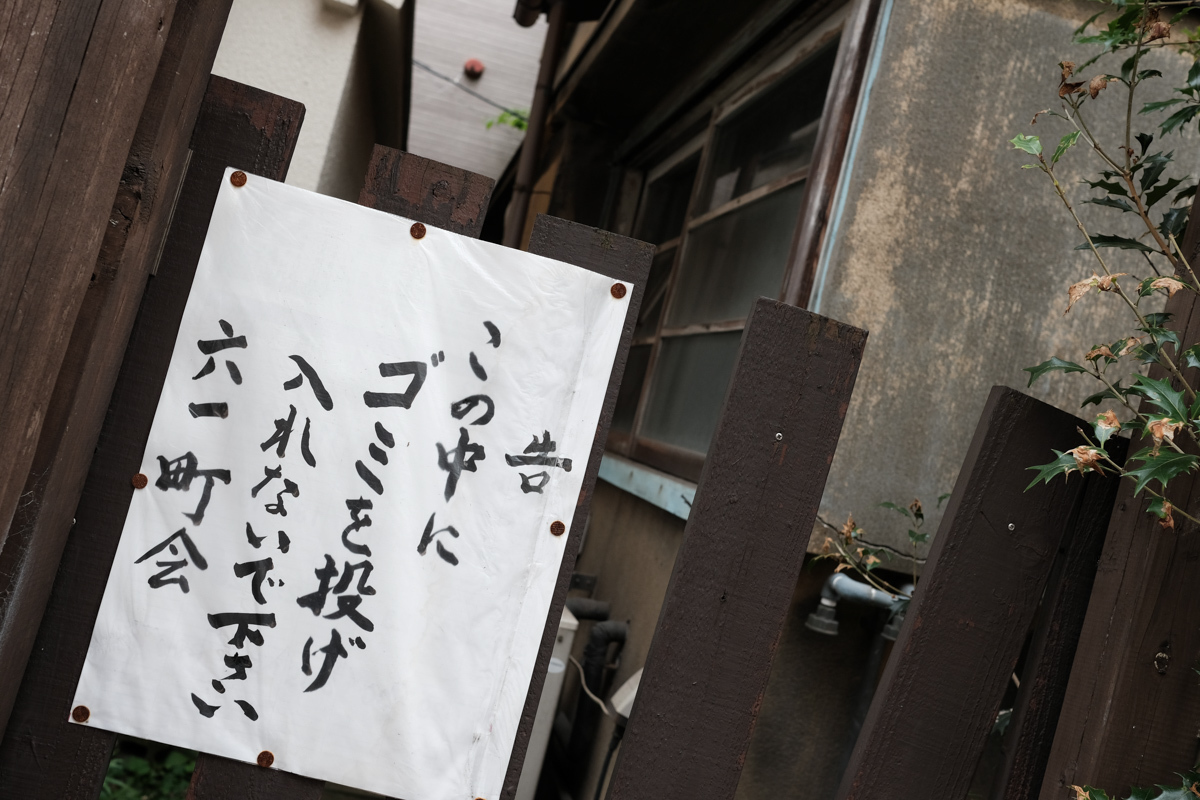 告
この中に
ゴミを投げ
入れないで下さい
六一町会